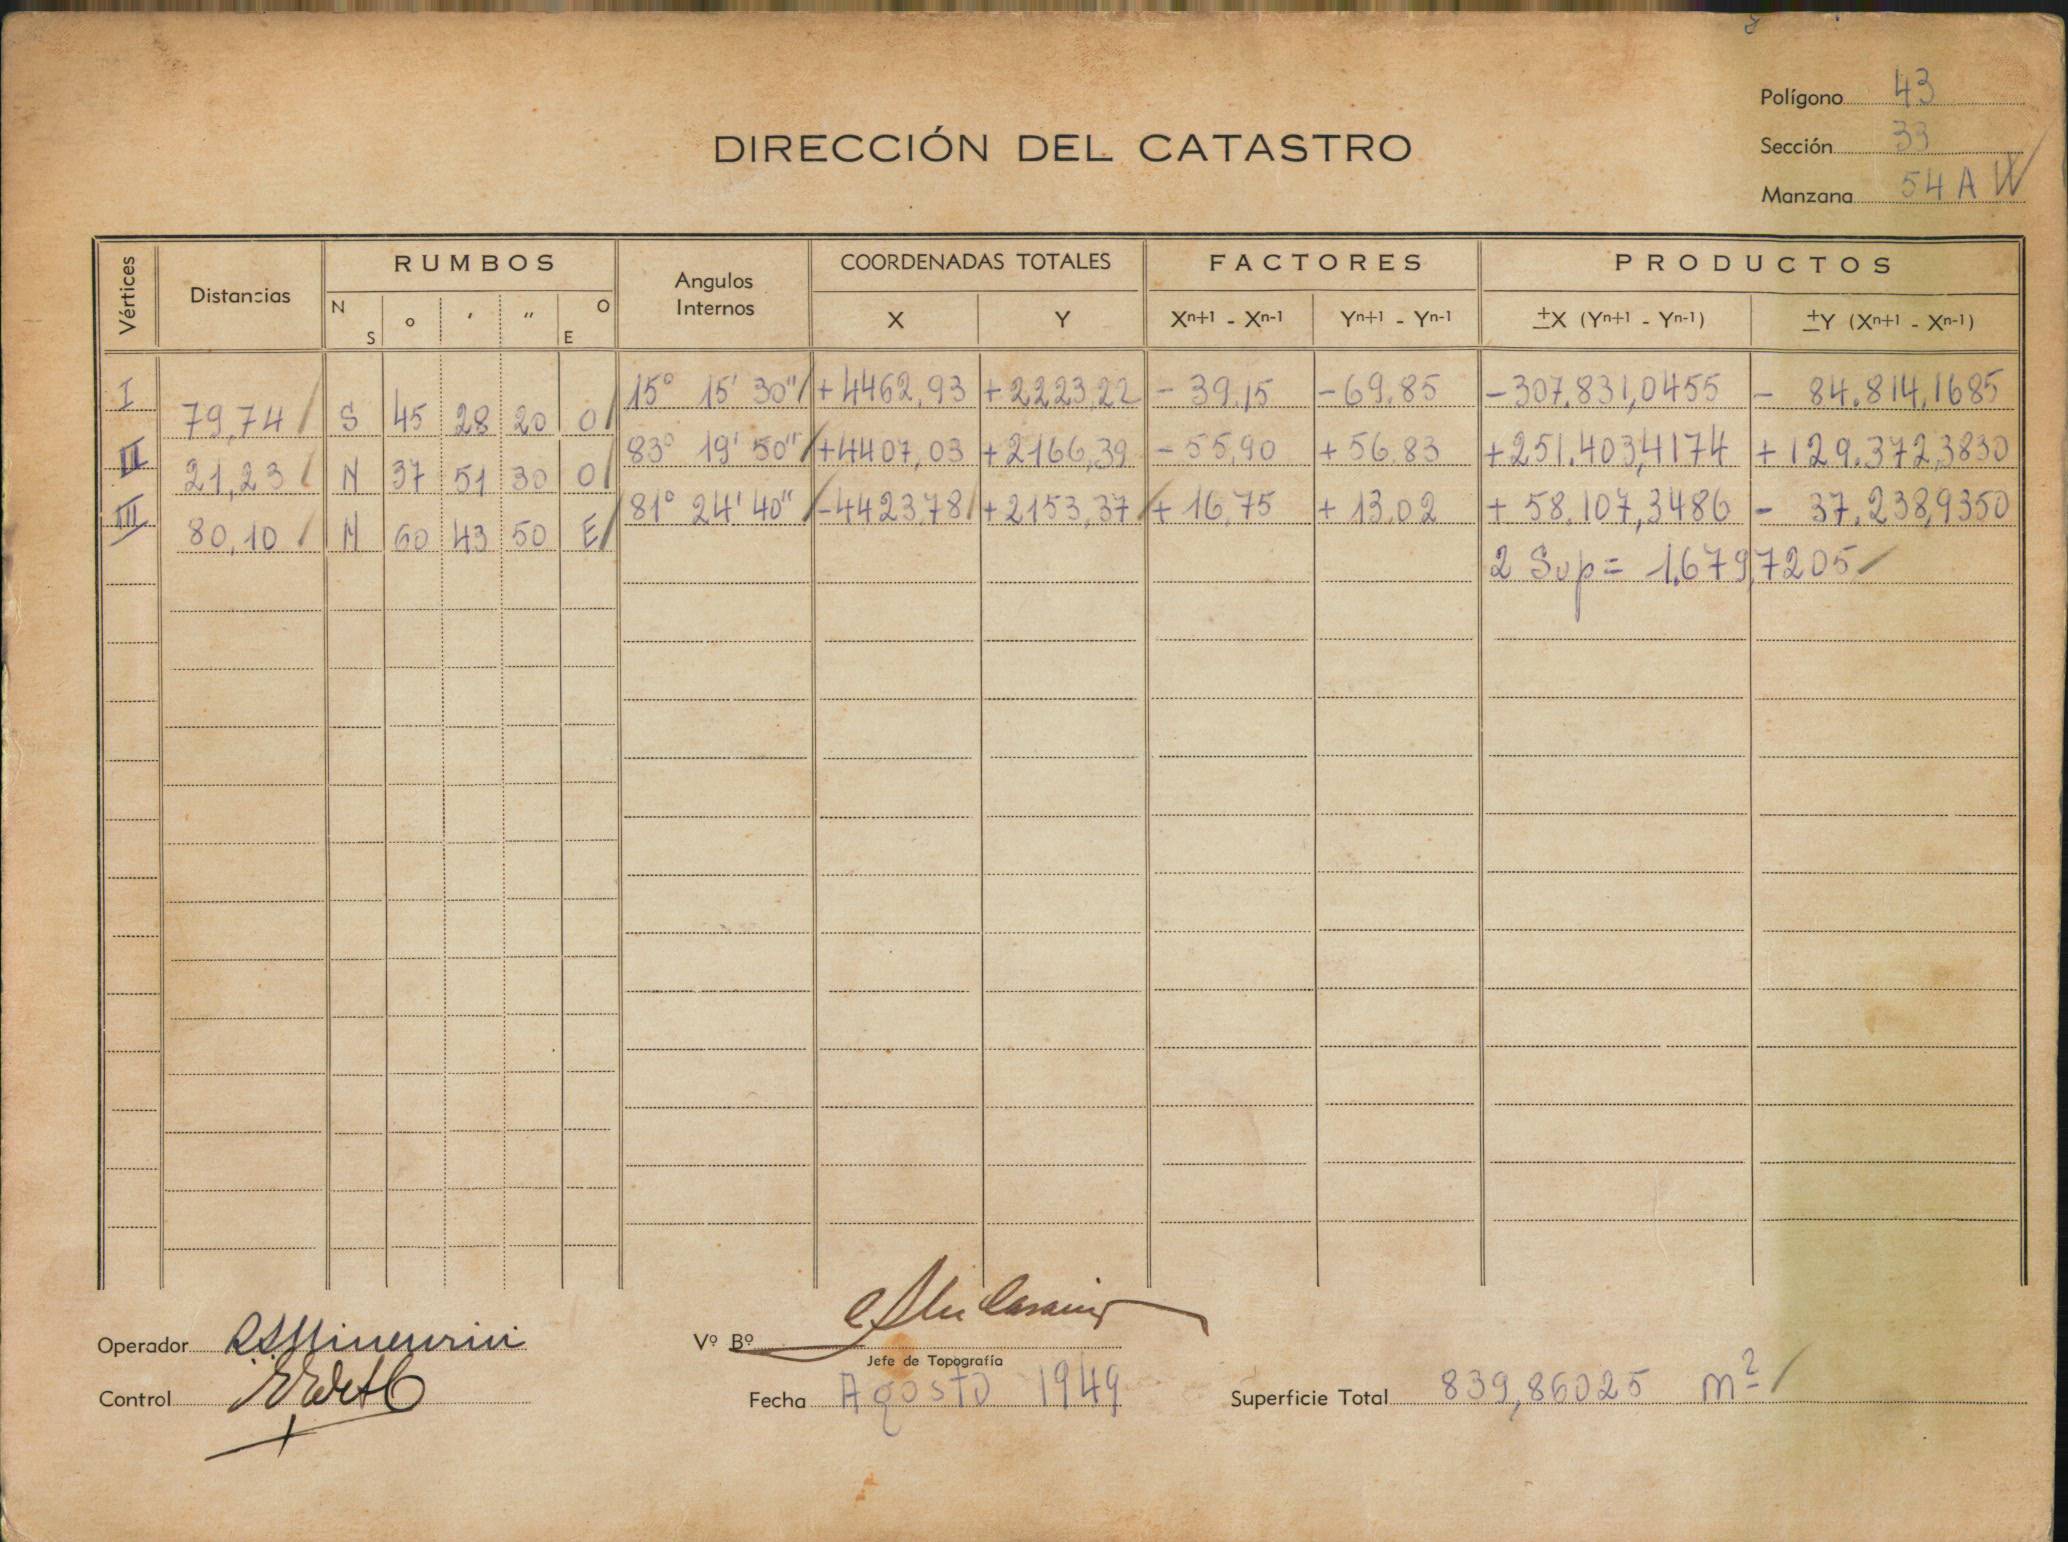 Polígono 43
DIRECCIÓN DEL CATASTRO
Sección 33
Manzana 54 A W
Vértices Distancias RUMBOS Angulos Internos COORDENADAS TOTALES FACTORES PRODUCTOS
N S ° ' " O E X Y Xn+1 - Xn-1 Yn+1 - Yn-1 ±X (Yn+1 - Yn-1) ±Y (Xn+1 - Xn-1)
I 15° 15' 30" +4462,93 +2223,22 - 39,15 -69,85 -307.831,0455 - 84.814,1685
79,74 S 45 28 20 O
II 83° 19' 50" +4407,03 +2166,39 -55,90 +56,83 +251.403,4174 +129.372,3830
21,23 N 37 51 30 O
III 81° 24' 40" -4423,78 +2153,37 + 16,75 + 13,02 + 58.107,3486 - 37.238,9350
80,10 N 60 43 50 E
2 Sup = 1.679,7205
Operador
Vº Bº
Jefe de Topografía
Control
Fecha Agosto 1949
Superficie Total 839,86025 m²